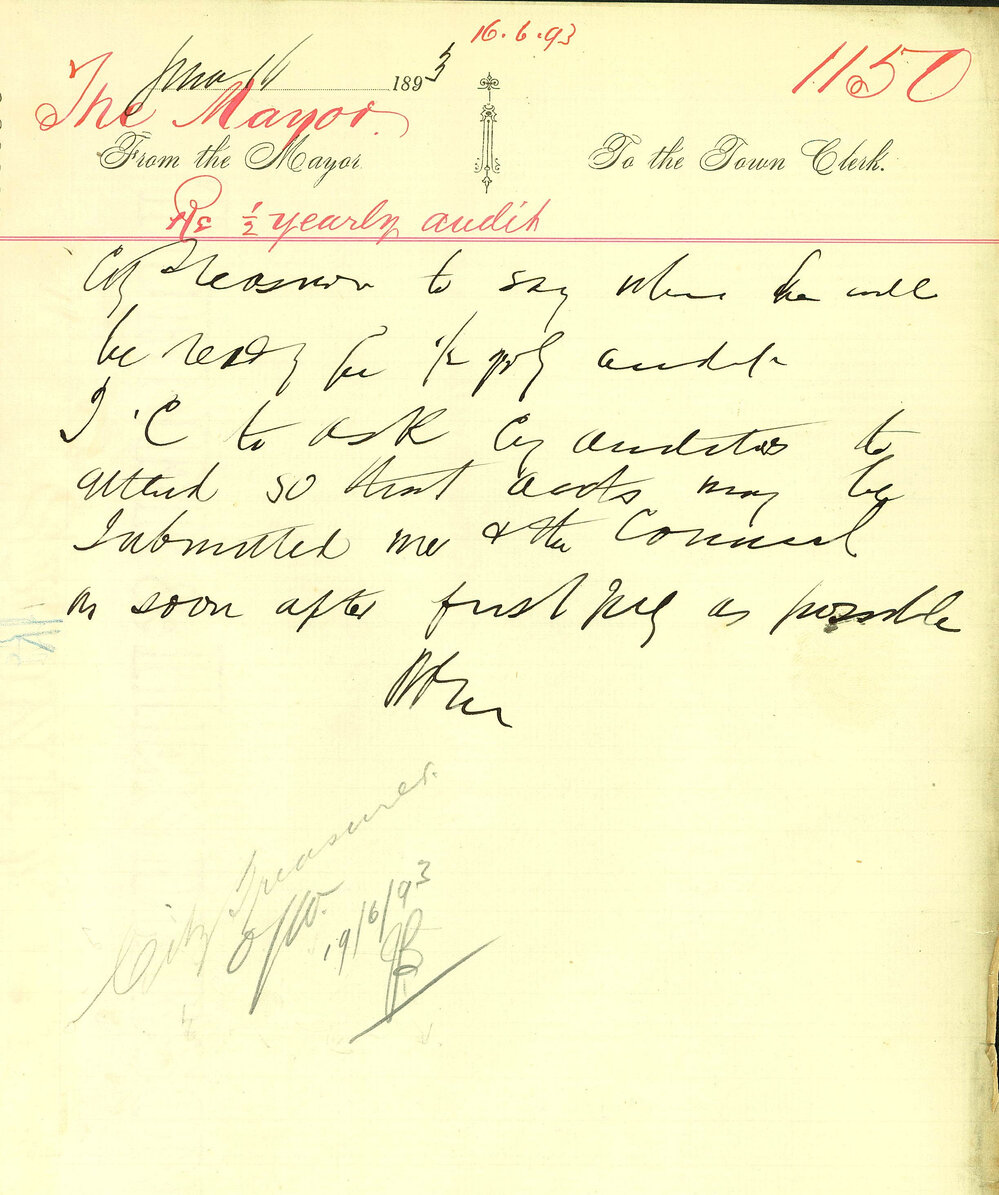 16.6.93
June 16 1893
1150
The Mayor.
From the Mayor.
To the Town Clerk.
Re ½ yearly audit
City Treasurer to say when he will
be ready for ½ yrly audit
T.C to ask City auditors to
attend so that accts may be
submitted me & the Council
as soon after first July as possible
City Treasurer.
19/6/93